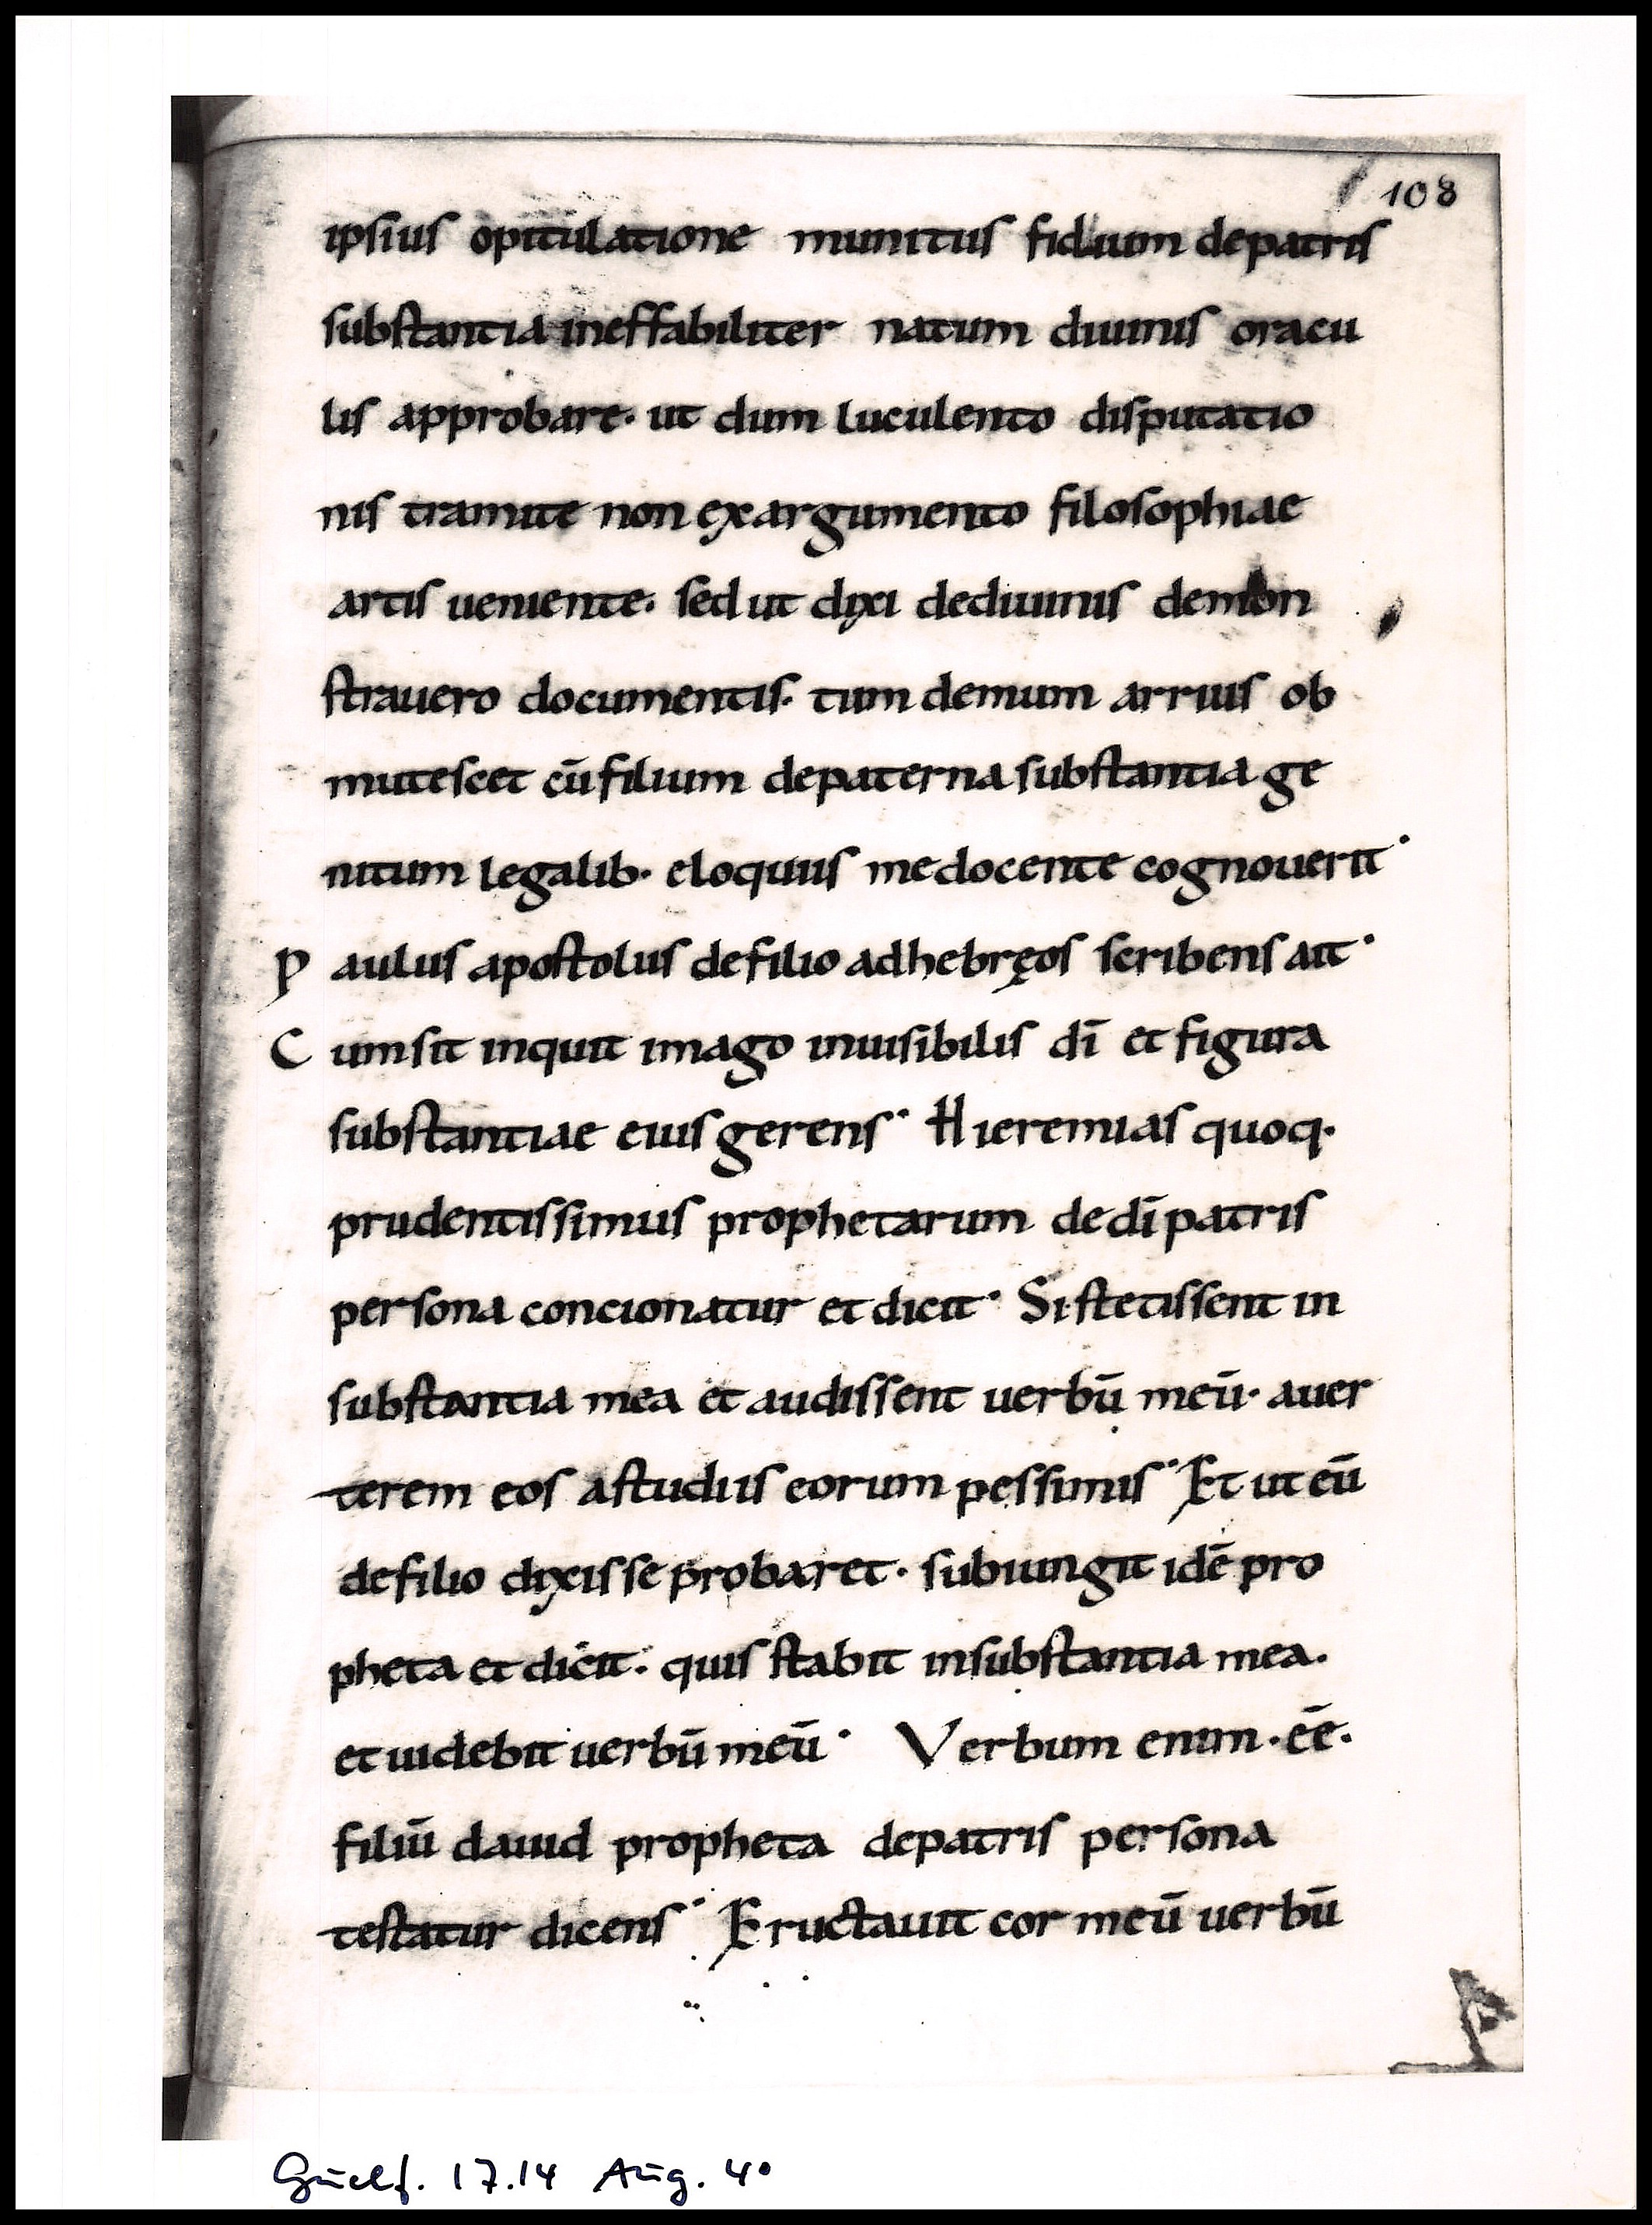 108
ipsius opitulatione munitus filium depatris
substantia ineffabiliter natum diuinis oracu
lis approbare· ut dum luculento disputatio
nis tramite non exargumento filosophiae
artis ueniente· sed ut dixi dediuinis demon
strauero documentis· tum demum arrius ob
mutescet cū filium depaterna substantia ge
nitum legalib· eloquiis medocente cognouerit·
P aulus apostolus defilio adhebręos scribens ait·
C umsit inquit imago inuisibilis dī et figura
substantiae eius gerens· Hieremias quoq·
prudentissimus prophetarum dedī patris
persona concionatur et dicit· Si stetissent in
substantia mea et audissent uerbū meū· auer
terem eos astudiis eorum pessimis· Et ut eū
defilio dixisse probaret· subiungit idē pro
pheta et dicit· quis stabit insubstantia mea·
et uidebit uerbū meū· Verbum enim· eē·
filiū dauid propheta depatris persona
testatur dicens· Eructauit cor meū uerbū
Guelf. 17.14 Aug. 4°